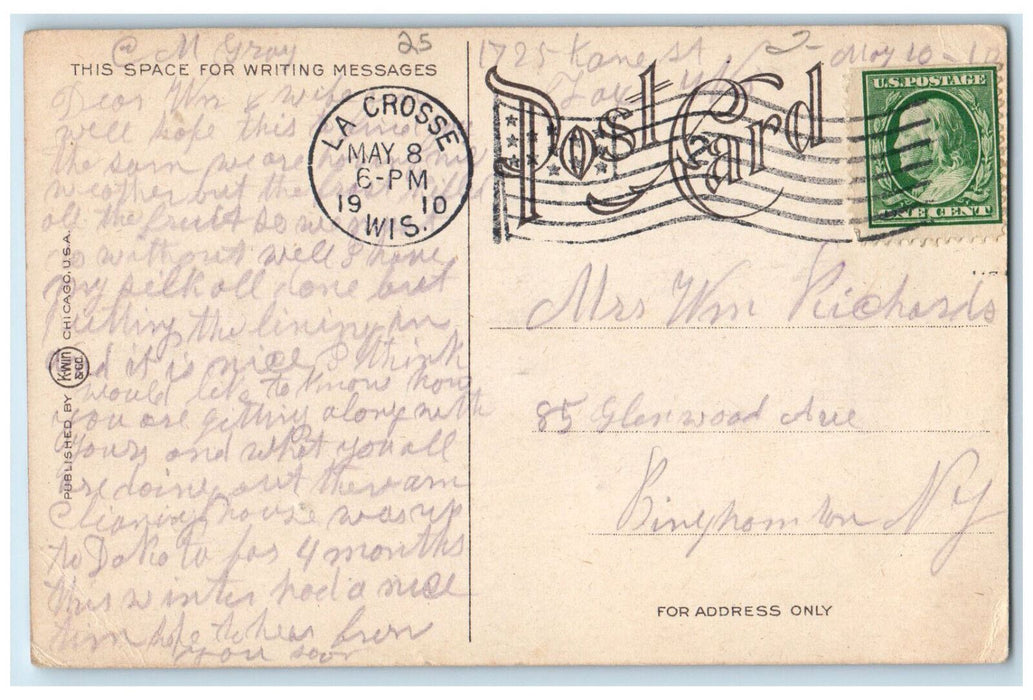 C M Gray 25 1725 Kane St May 10-10
THIS SPACE FOR WRITING MESSAGES
Dear Wm & wife
will hope this to find
the sam we are having
weather but the
all the fruit so we
go without well I have
my silk all done but
putting the lining in
and it is nice I think
would like to know how
you are getting along with
yours and what you all
are doing out there am
Cleaning house was up
to Dakota for 4 months
this winter had a nice
tim hope to hear from
you soon
PUBLISHED BY KWIN & CO. CHICAGO, U.S.A.
LA CROSSE
MAY 8
6-PM
19 10
WIS.
Post Card
2
U.S. POSTAGE
ONE CENT
Mrs Wm Richards
85 Glenwood Ave
Binghamton NY
FOR ADDRESS ONLY